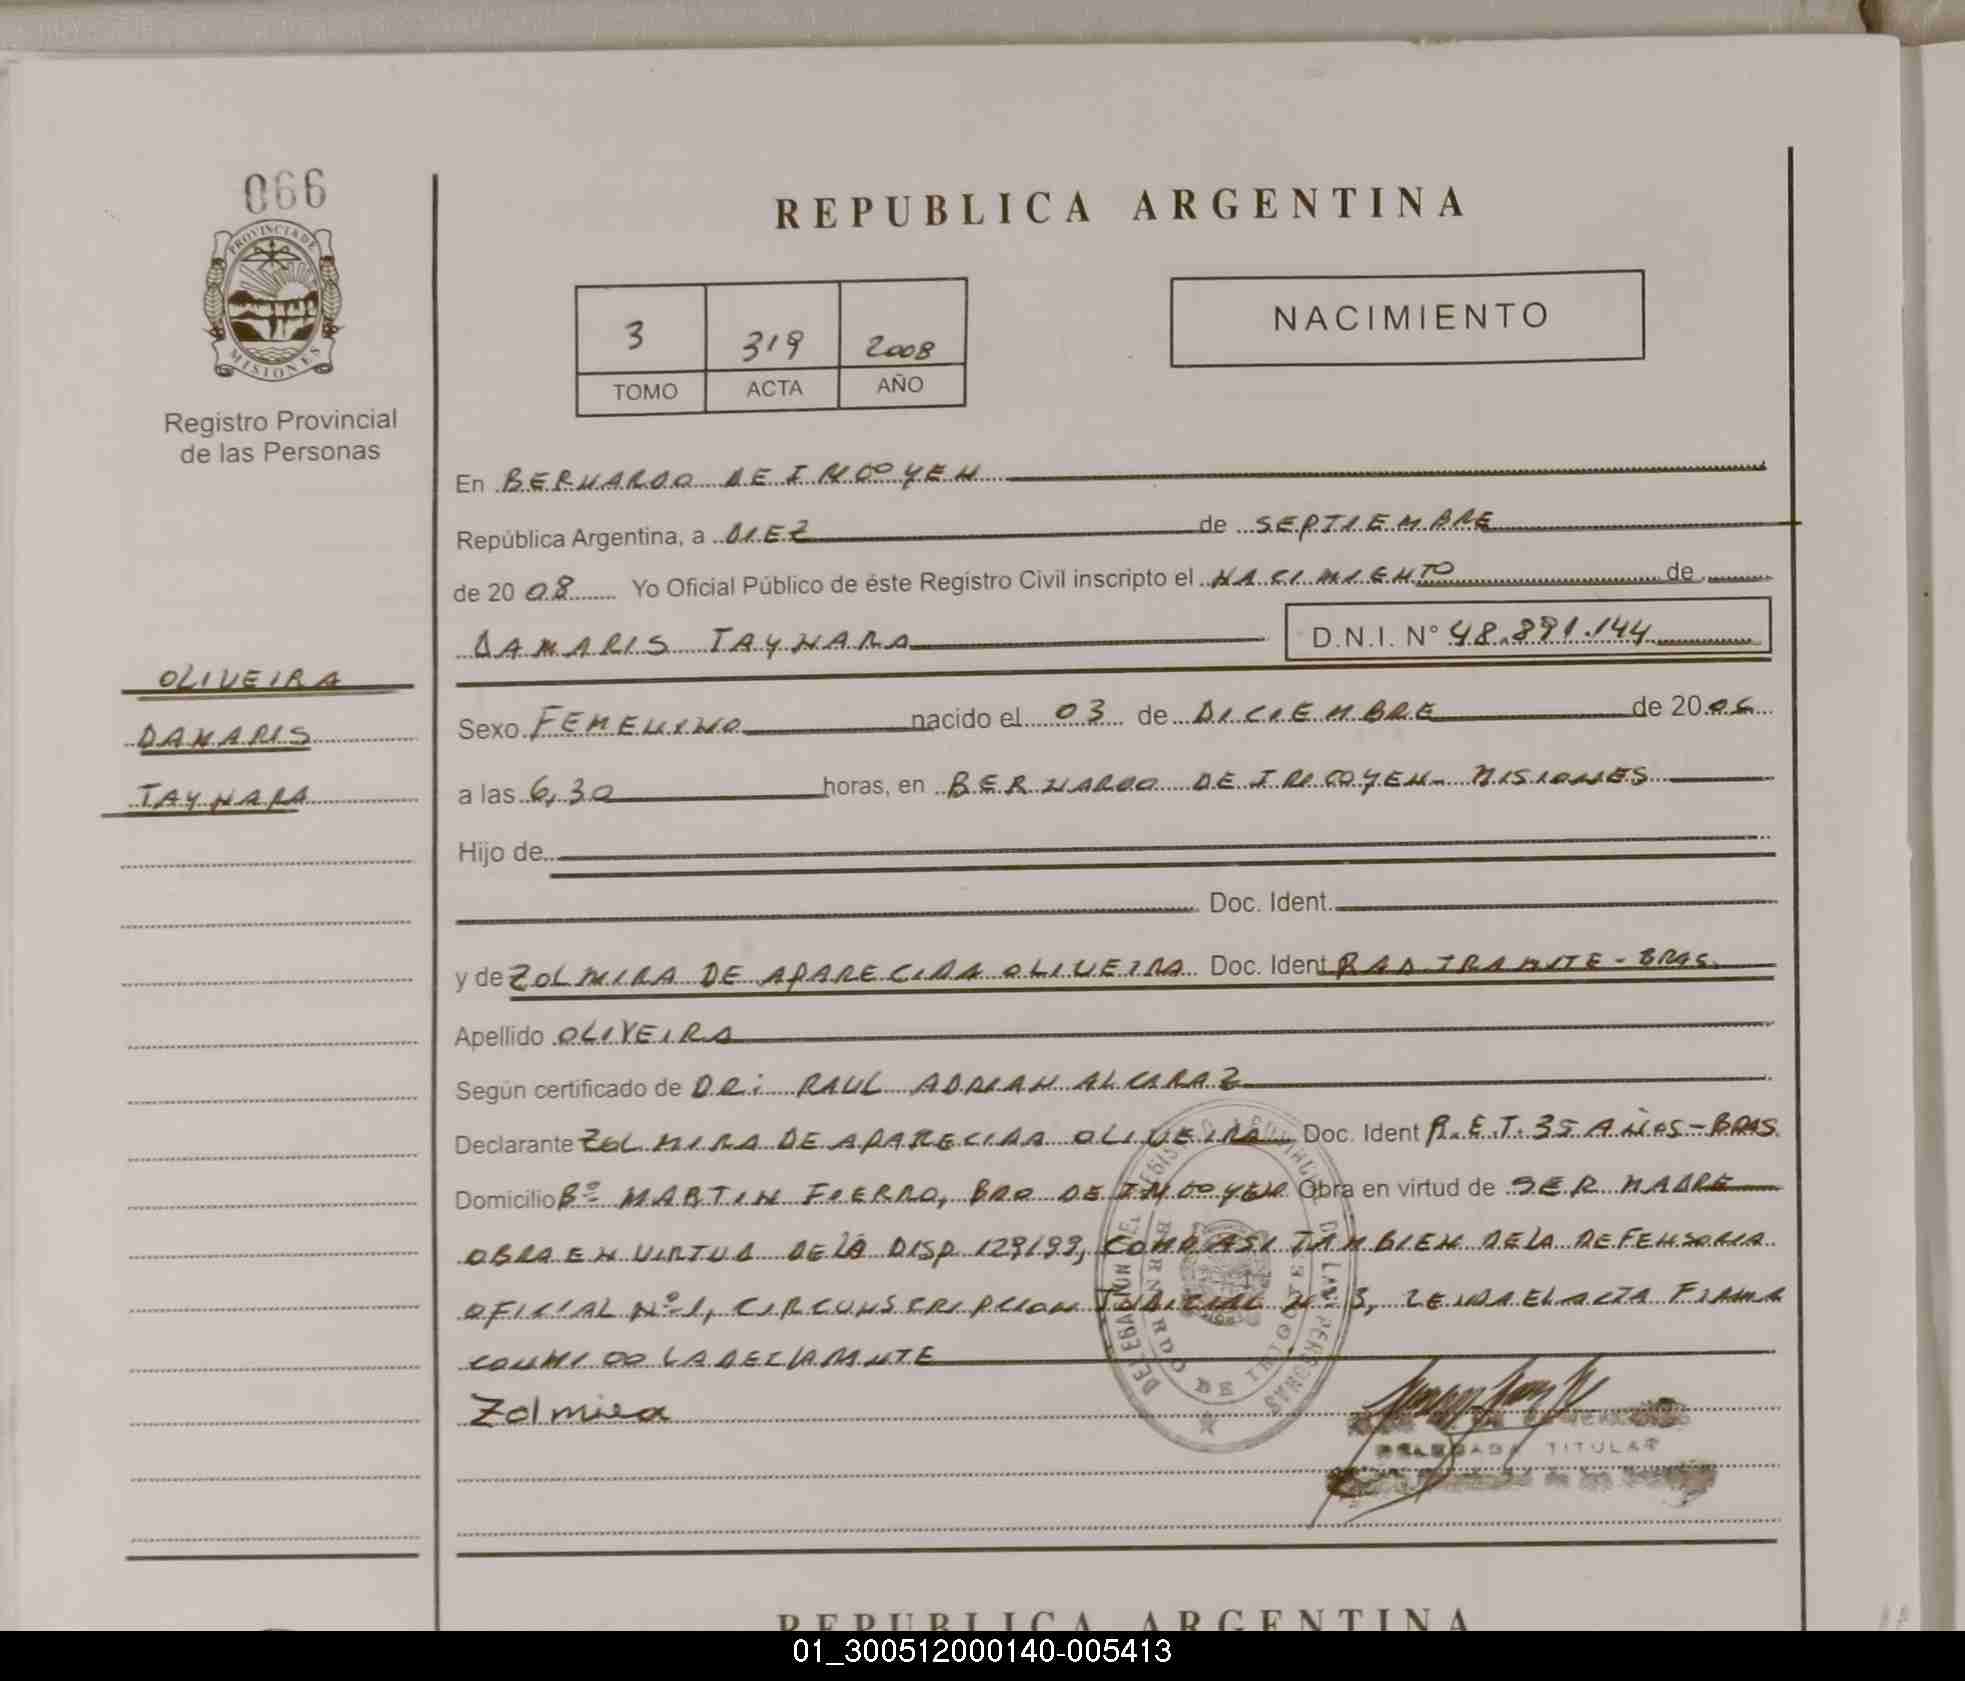 066
PROVINCIA DE
MISIONES
Registro Provincial
de las Personas
REPUBLICA ARGENTINA
3 319 2008
TOMO ACTA AÑO
NACIMIENTO
En BERNARDO DE IRIGOYEN
República Argentina, a DIEZ de SEPTIEMBRE
de 2008 Yo Oficial Público de éste Registro Civil inscripto el NACIMIENTO de
DAMARIS TAYNARA D.N.I. N° 48.891.144
OLIVEIRA
DAMARIS
TAYNARA
Sexo FEMENINO nacido el 03 de DICIEMBRE de 20
a las 6,30 horas, en BERNARDO DE IRIGOYEN - MISIONES
Hijo de
Doc. Ident.
y de ZOLMIRA DE APARECIDA OLIVEIRA Doc. Ident RAD. TRAMITE - BRAS.
Apellido OLIVEIRA
Según certificado de DR: RAUL ADRIAN ALCARAZ
Declarante ZOLMIRA DE APARECIDA OLIVEIRA Doc. Ident R.E.T. 35 AÑOS - BRAS
Domicilio Bº MARTIN FIERRO, BDO DE IRIGOYEN Obra en virtud de SER MADRE
OBRA EN VIRTUD DE LA DISP 129/99, COMO ASI TAMBIEN DE LA DEFENSORIA
OFICIAL Nº 1, CIRCUNSCRIPCION JUDICIAL Nº 3, LEIDA EL ACTA FIRMA
CONMIGO LA DECLARANTE
Zolmira
DELEGADA TITULAR
REPUBLICA ARGENTINA
01_300512000140-005413